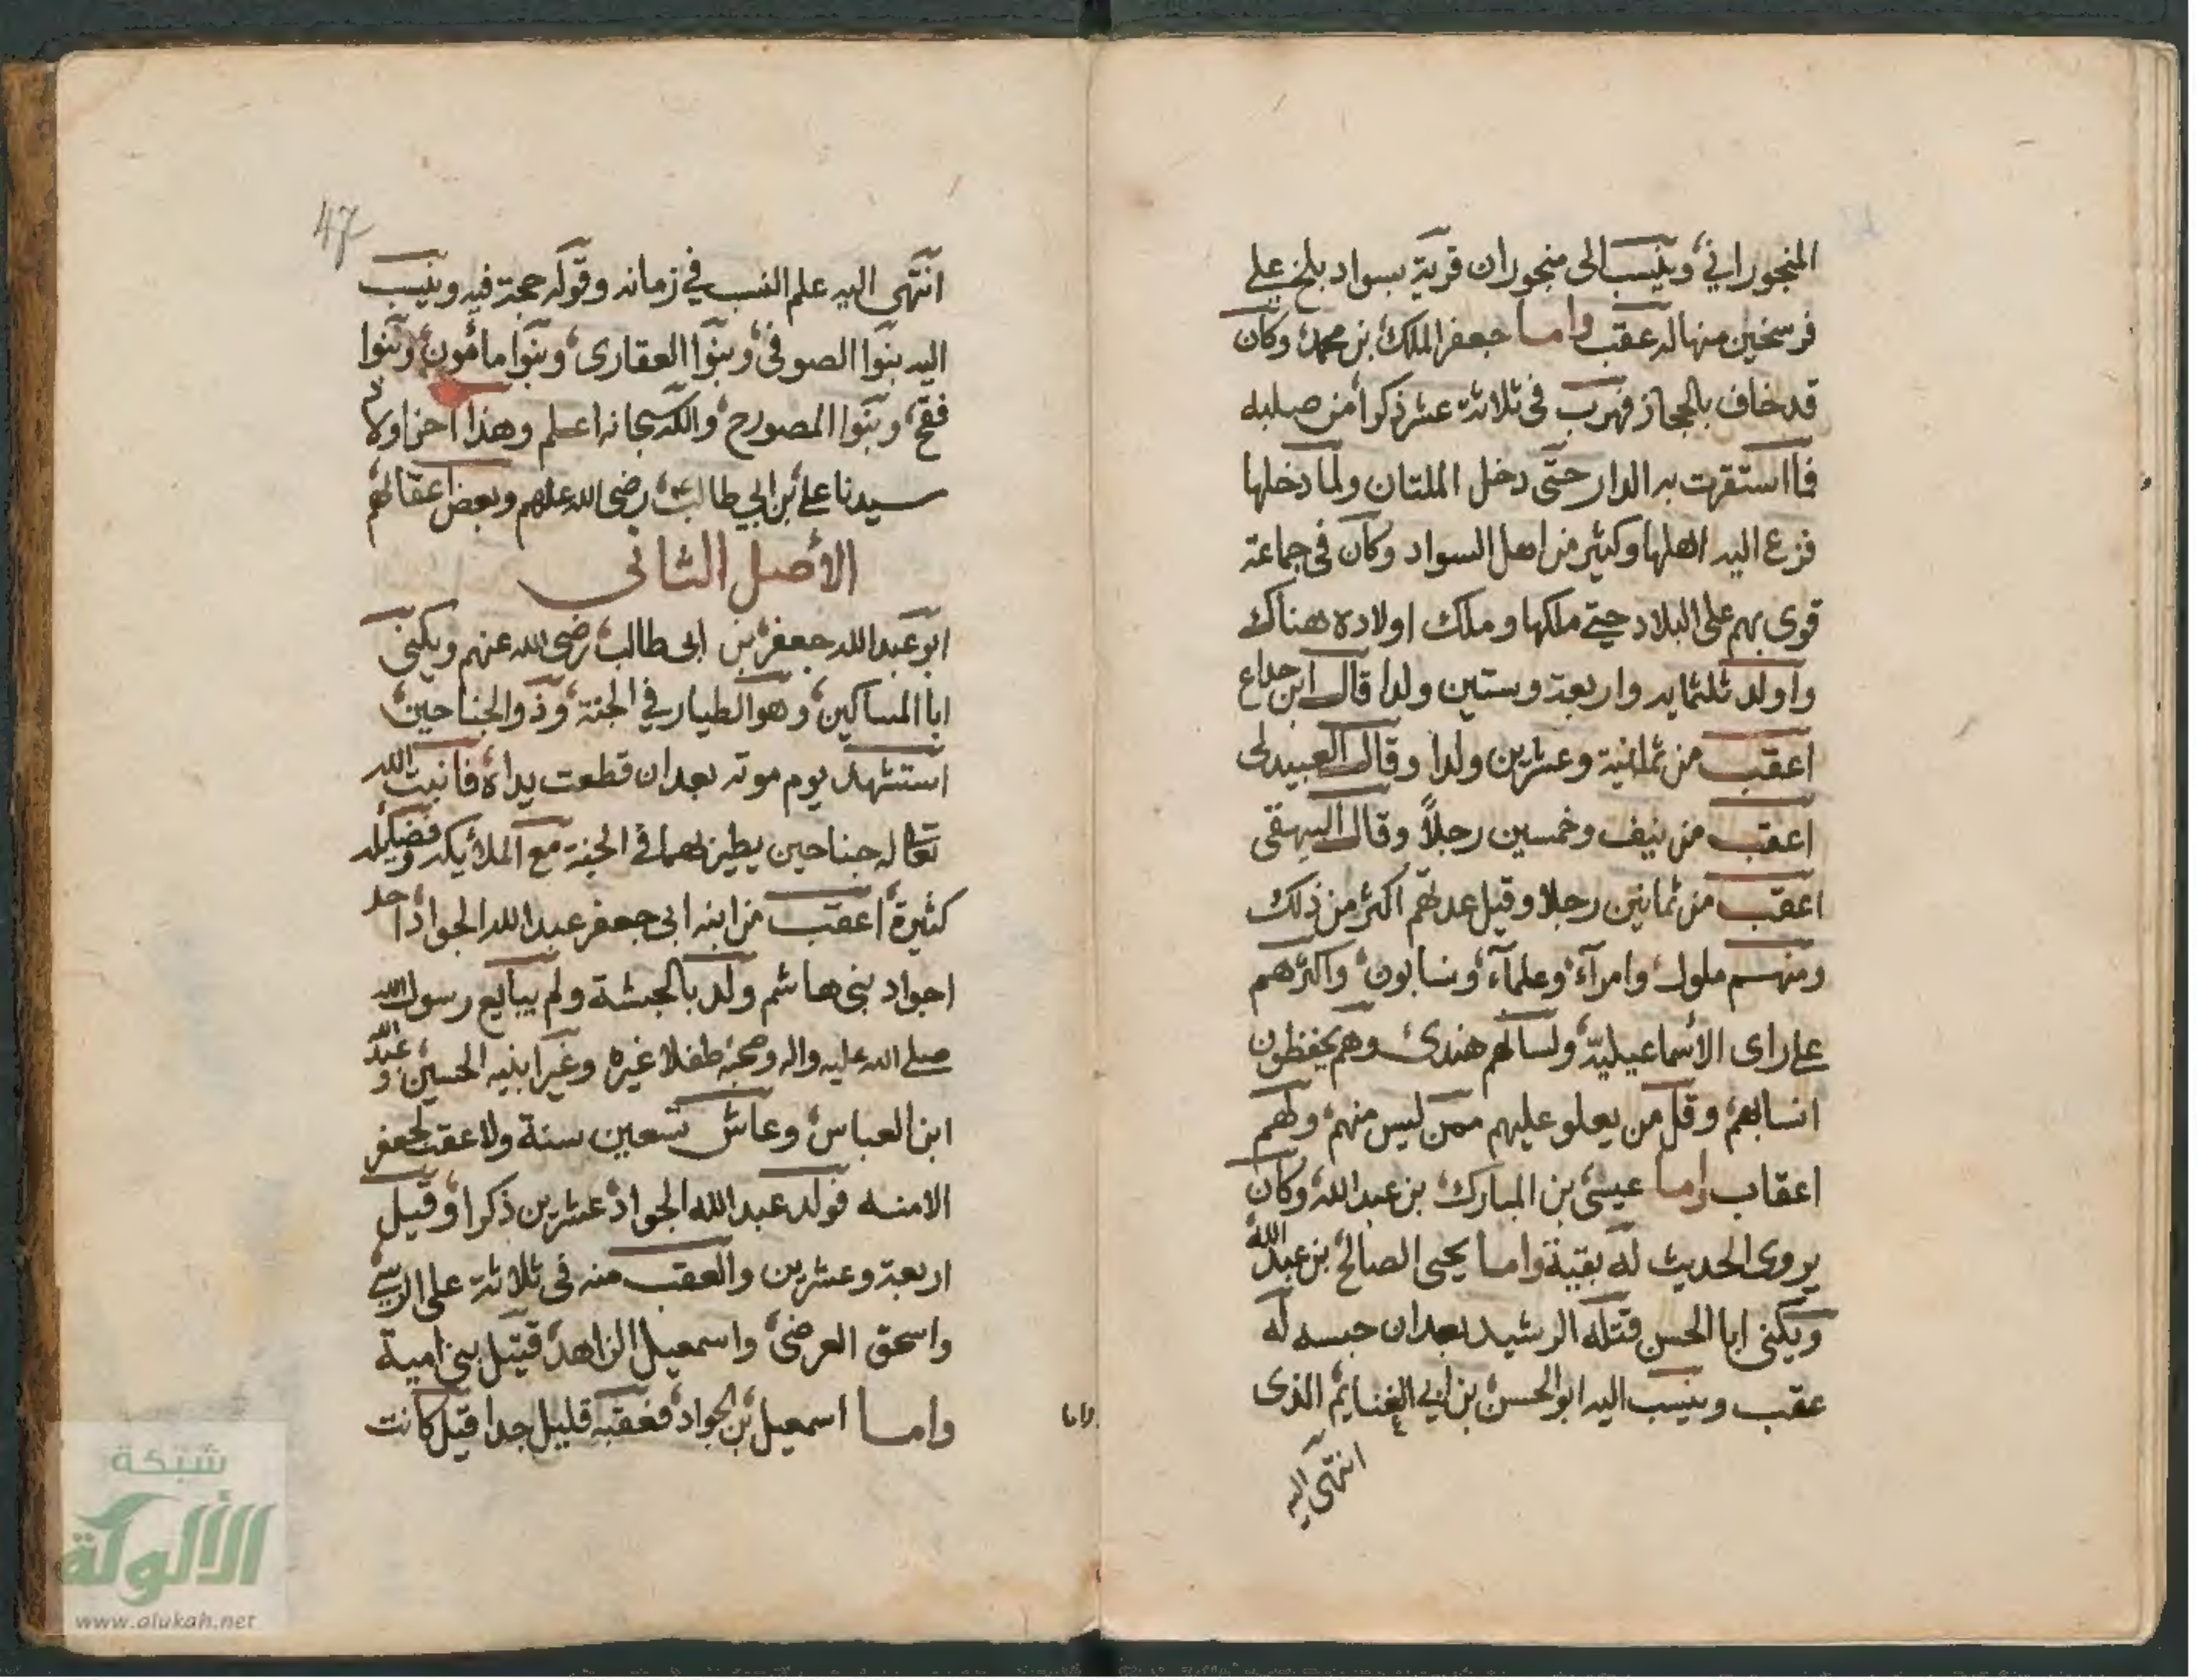 المنجوراني وينسب الى منجوران قرية بسواد بلخ على
فرسخين منها له عقب واما جعفر الملك بن محمد وكان
قد خاف بالحجاز فهرب فى ثلاثة عشر ذكرا من صلبه
فما استقرت به الدار حتى دخل الملتان ولما دخلها
فزع اليه اهلها وكثير من اهل السواد وكان فى جماعة
قوى بهم على البلاد حتى ملكها وملك اولاده هناك
واولد ثلثمايه واربعة وستين ولدا قال ابن خداع
اعقب من ثمانية وعشرين ولدا وقال العبيدلى
اعقب من نيف وخمسين رجلاً وقال البيهقى
اعقب من ثمانين رجلا وقيل عدتهم اكثر من ذلك
ومنهم ملوك وامرآء وعلمآء ونسابون واكثرهم
على راى الأسماعيلية ولسانهم هندى وهم يحفظون
انسابهم وقل من يعلو عليهم ممن ليس منهم ولهم
اعقاب واما عيسى بن المبارك بن عبد الله وكان
يروى الحديث له بقية واما يحيى الصالح بن عبد الله
ويكنى ابا الحسن قتله الرشيد بعد ان حبسه له
عقب وينسب اليه ابو الحسن بن ابي الغنايم الذى
انتهى اليه
47
انتهى اليه علم النسب في زمانه وقوله حجة فيه وينسب
اليه بنوا الصوفى وبنوا العقارى وبنوا مأمون وبنوا
فقح وبنوا المصورح والله سبحانه اعلم وهذا اخر اولاد
سيدنا على بن ابي طالب رضى الله عليهم وبعض اعقابهم
الأصل الثانى
ابو عبد الله جعفر بن ابى طالب رضى الله عنهم ويكنى
ابا المساكين وهو الطيار في الجنة وذو الجناحين
استشهد يوم موته بعد ان قطعت يداه فانبت الله
تعالى له جناحين يطير بهما فى الجنة مع الملائكه وفضايله
كثيرة اعقب من ابنه ابى جعفر عبد الله الجواد احد
اجواد بنى هاشم ولد بالحبشة ولم يبايع رسول الله
صلى الله عليه واله وصحبه طفلا غيره وغير ابنيه الحسين وعبد الله
ابن العباس وعاش تسعين سنة ولا عقب لجعفر
الا منه فولد عبد الله الجواد عشرين ذكرا وقيل
اربعة وعشرين والعقب منه فى ثلاثة على الزينبى
واسحق العرضى واسمعيل الزاهد قتيل بنى امية
واما اسمعيل بن الجواد فعقبه قليل جدا قيل كانت
واما
شبكة
الألوكة
www.alukah.net